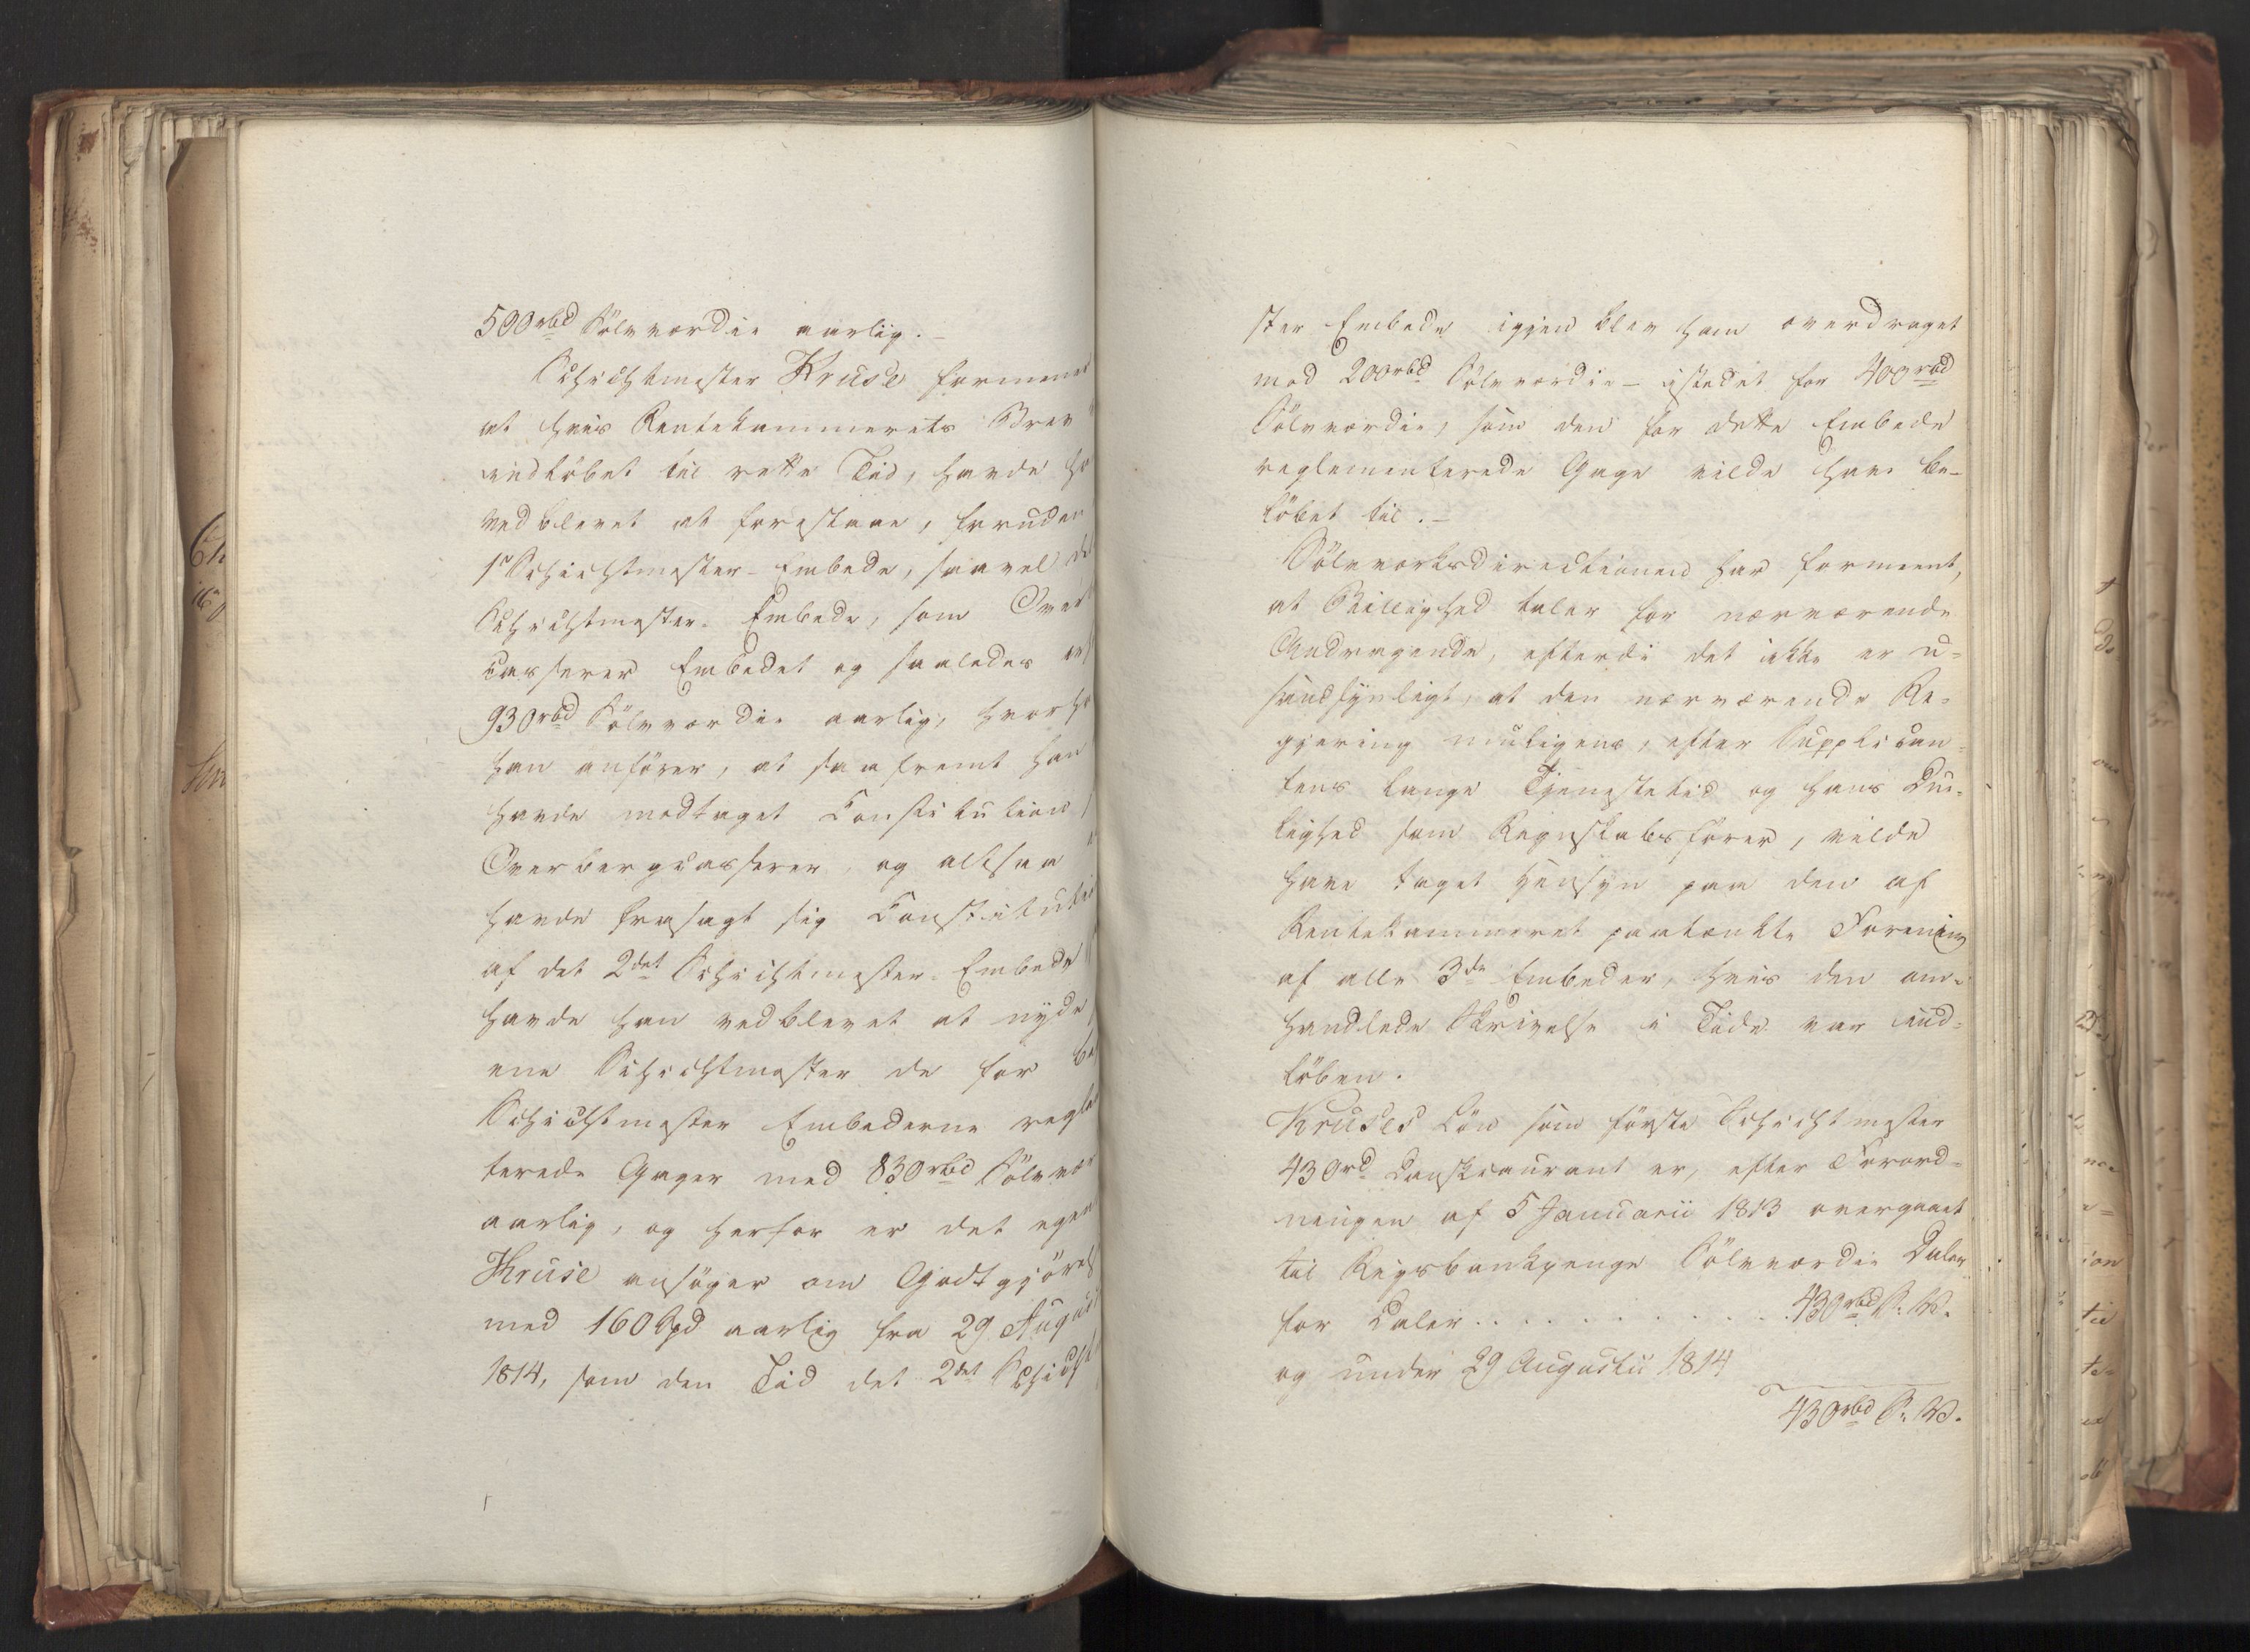 500rbd Sölvværdie aarlig.-
Schichtmester Kruse formener
at hvis Rentekammerets Brev
indlöbet til rette Tid, havde
vedblevet at forestaae, foruden
1ste Schichtmester-Embede, saavel
Schichtmester-Embede, som Over
casserer Embedet og saaledes
930rbd Sölvværdie aarlig, hvor
han anförer, at saafremt han
havde modtaget Constitution
Overbergcasserer, og altsaa
havde frasagt sig Constitutio
af det 2det Schichtmester-Embede
havde han vedblevet at nyde
ene Schichtmester de for
Schichtmester Embederne regle
terede Gager med 830rbd Sölvvær
aarlig, og herfor er det egen
Kruse ansöger om Godtgjörels
med 160 Spd aarlig fra 29 August
1814, som den Tid det 2det Schicht
ster Embede igjen blev ham overdraget
mod 200rbd Sölvværdie - istedet for 400rbd
Sölvværdie, som den for dette Embede
reglementerede Gage vilde have be-
löbet til.-
Sölvværksdirectionen har formeent,
at Billighed taler for nærværende
Andragende, efterdi det ikke er u-
sandsynligt, at den nærværende Re-
gjering muligens, efter Supplican-
tens lange Tjenestetid og hans Due-
lighed som Regnskabsförer, vilde
have taget Hensyn paa den af
Rentekammeret paatænkte Forening
af alle 3de Embeder, hvis den om-
handlede Skrivelse i Tide var ind-
löben.
Kruses Lön som förste Schichtmester
430rd Danskcourant er, efter Forord-
ningen af 5 Januarii 1813 overgaaet
til Rigsbankpenge Sölvværdie Daler
for Daler . . . . . . . . . . . 430rbd S. V.
og under 29 Augustii 1814
430rbd S. V.